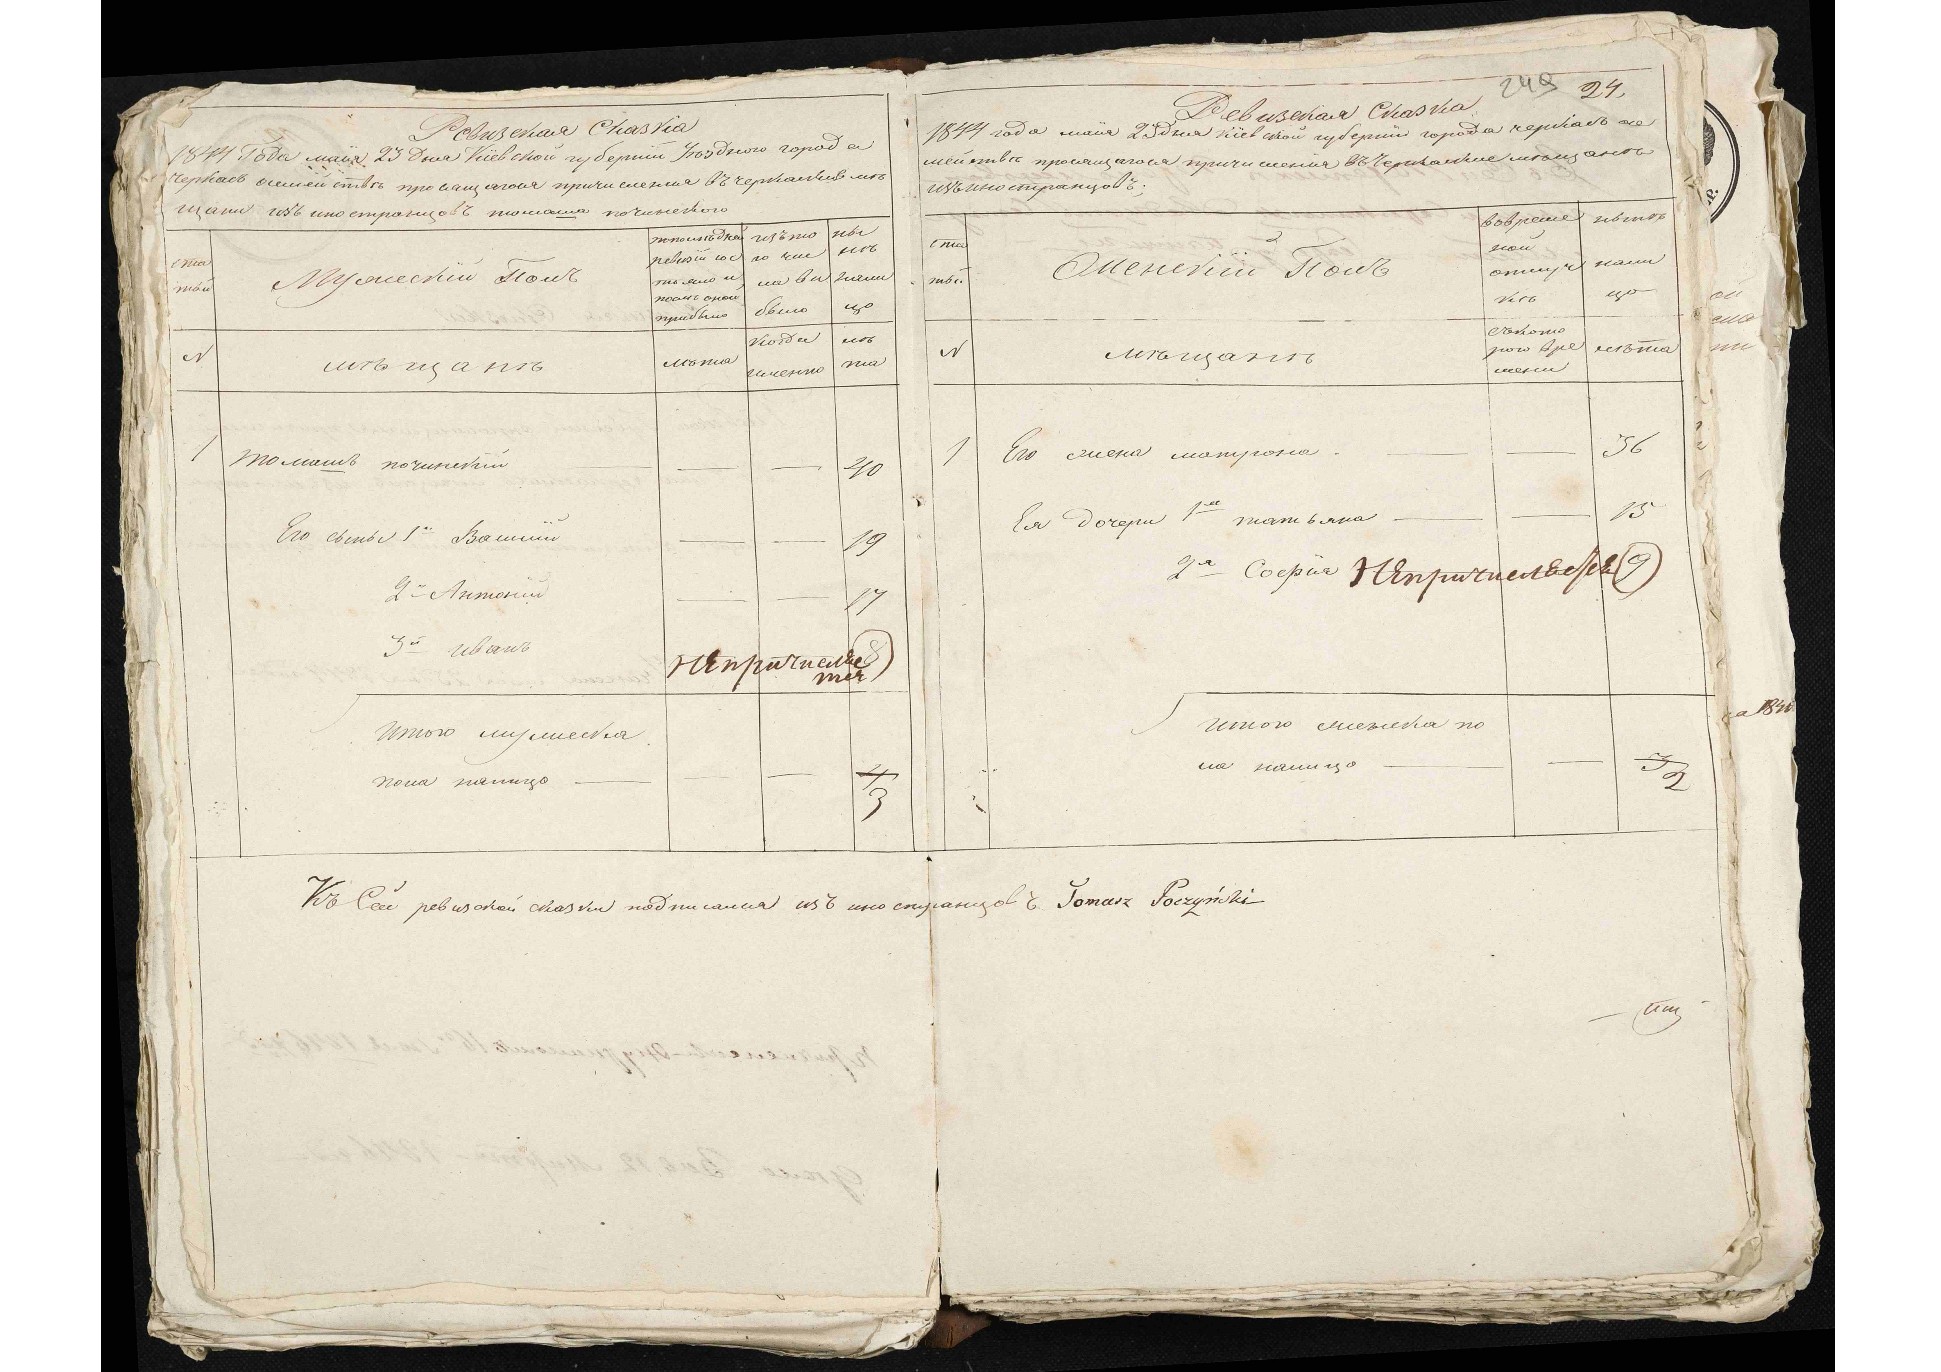 Ревизская Сказка
1844 Года маия 23 дня Киевской губернии Уездного города
Черкас о семействе просящагося причисления въ черкаские ме
щани изъ иностранцовъ томаша починского
ста
тьи
Мужеский Полъ
по последней
ревизии сос
тояло и
после оной
прибыло
изъ то
го чис
ла вы
было
ны
не
нали
цо
N
мещане
лета
когда
именно
ле
та
1
томашъ починский
40
Его сыны 1й Василий
19
2й Антоний
17
3й иванъ
Непричисляе
тся
8
итого мужеска
пола налицо
4
3
249
24.
Ревизская Сказка
1844 года маия 23 дня киевской губернии города черкасъ о се
мействе просящагося причисления въ Черкаские мещане
изъ иностранцовъ;
ста
тьи
Женский Полъ
во време
ной
отлуч
ке
ныне
нали
цо
N
мещане
съ кото
рого вре
мени
лета
1
Его жена матрона
36
Ея дочери 1я татьяна
15
2я София Непричисляется
9
итого женска по
ла налицо
3
2
Къ Сей ревизской сказки подписался изъ иностранцовъ Tomasz Poczyński